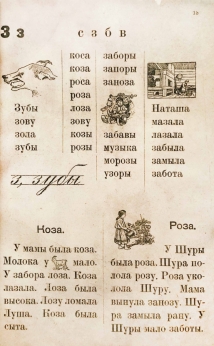 З з
с з б в
коса
коза
роса
роза
лоза
зову
козы
розы
заборы
запоры
заноза
забавы
музыка
морозы
узоры
Зубы
зову
зола
зубы
Наташа
мазала
лазала
забыла
замыла
забота
з, зубы
Коза.
У мамы была коза.
Молока у мало.
У забора лоза. Коза
лазала. Лоза была
высока. Лозу ломала
Луша. Коза была
сыта.
Роза.
У Шуры
была роза. Шура по-
лола розу. Роза уко-
лола Шуру. Мама
вынула занозу. Шу-
ра замыла рану. У
Шуры мало заботы.